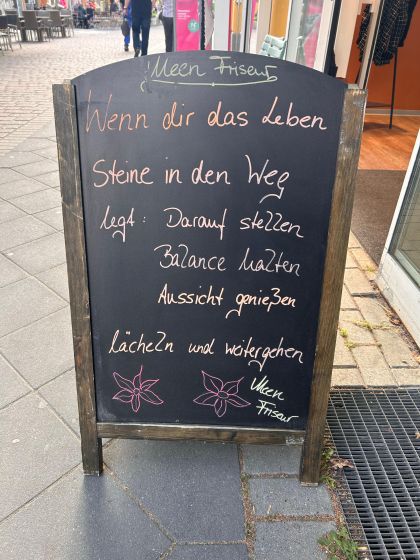 Meen Friseur
Wenn dir das Leben
Steine in den Weg
legt: Darauf stellen
Balance halten
Aussicht genießen
lächeln und weitergehen
Meen
Friseur